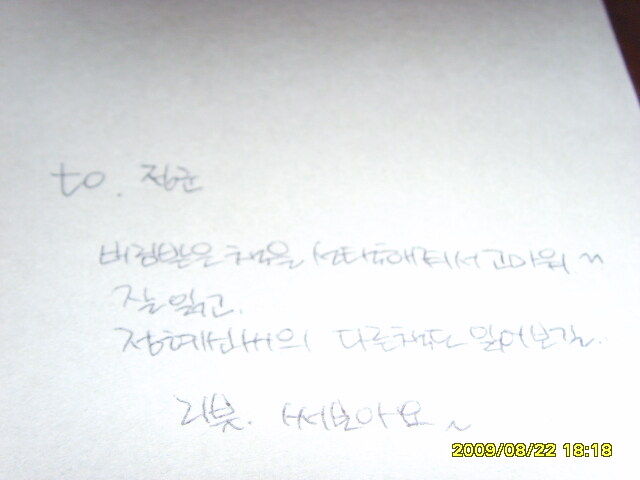 to. 점군
버림받은 책을 선택해줘서 고마워~
잘 읽고.
정혜씨의 다른책도 읽어보길..
리뷰. 써보아요~
2009/08/22 18:18